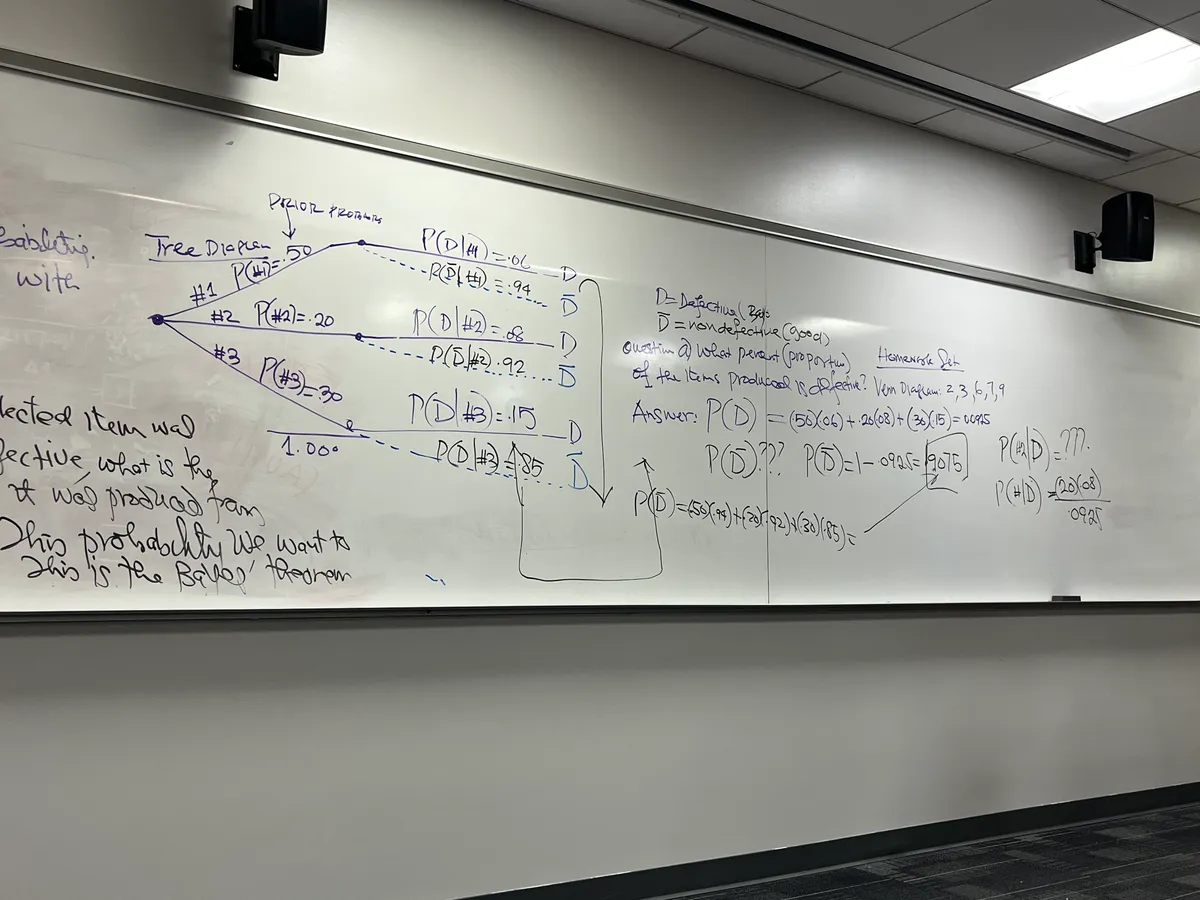 with
Tree Diagram
PRIOR
#1 P(#1)=.50
#2 P(#2)=.20
#3 P(#3)=.30
1.00
P(D|#1)=.06 D
P(D̄|#1)=.94 D̄
P(D|#2)=.08 D
P(D̄|#2).92 D̄
P(D|#3)=.15 D
P(D̄|#3)=.85 D̄
lected item was
fective, what is the
it was produced from
This probability we want to
This is the Bayes' theorem
D=Defective (Bad)
D̄=nondefective (good)
Question a) What percent (proportion)
of the items produced is defective?
Answer: P(D) = (.50)(.06)+.20(.08)+(.30)(.15)=.0925
P(D̄)??? P(D̄)=1-.0925=.9075
P(D̄)=(.50)(.94)+(.20)(.92)+(.30)(.85)=
Homework Set
Venn Diagram: 2, 3, 6, 7, 9
P(#2|D)=???
P(#|D)=(.20)(.08)
.0925